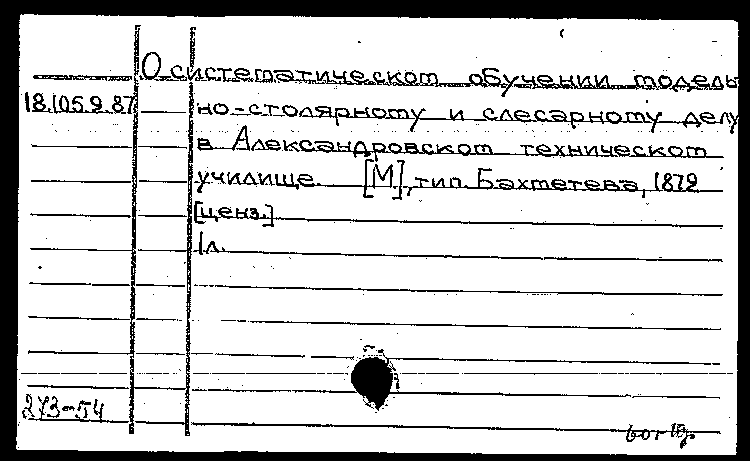 О систематическом обучении модель
18.105.9.87 но-столярному и слесарному делу
в Александровском техническом
училище. [М], тип. Бахметева, 1872
[ценз.]
1л.
273-54